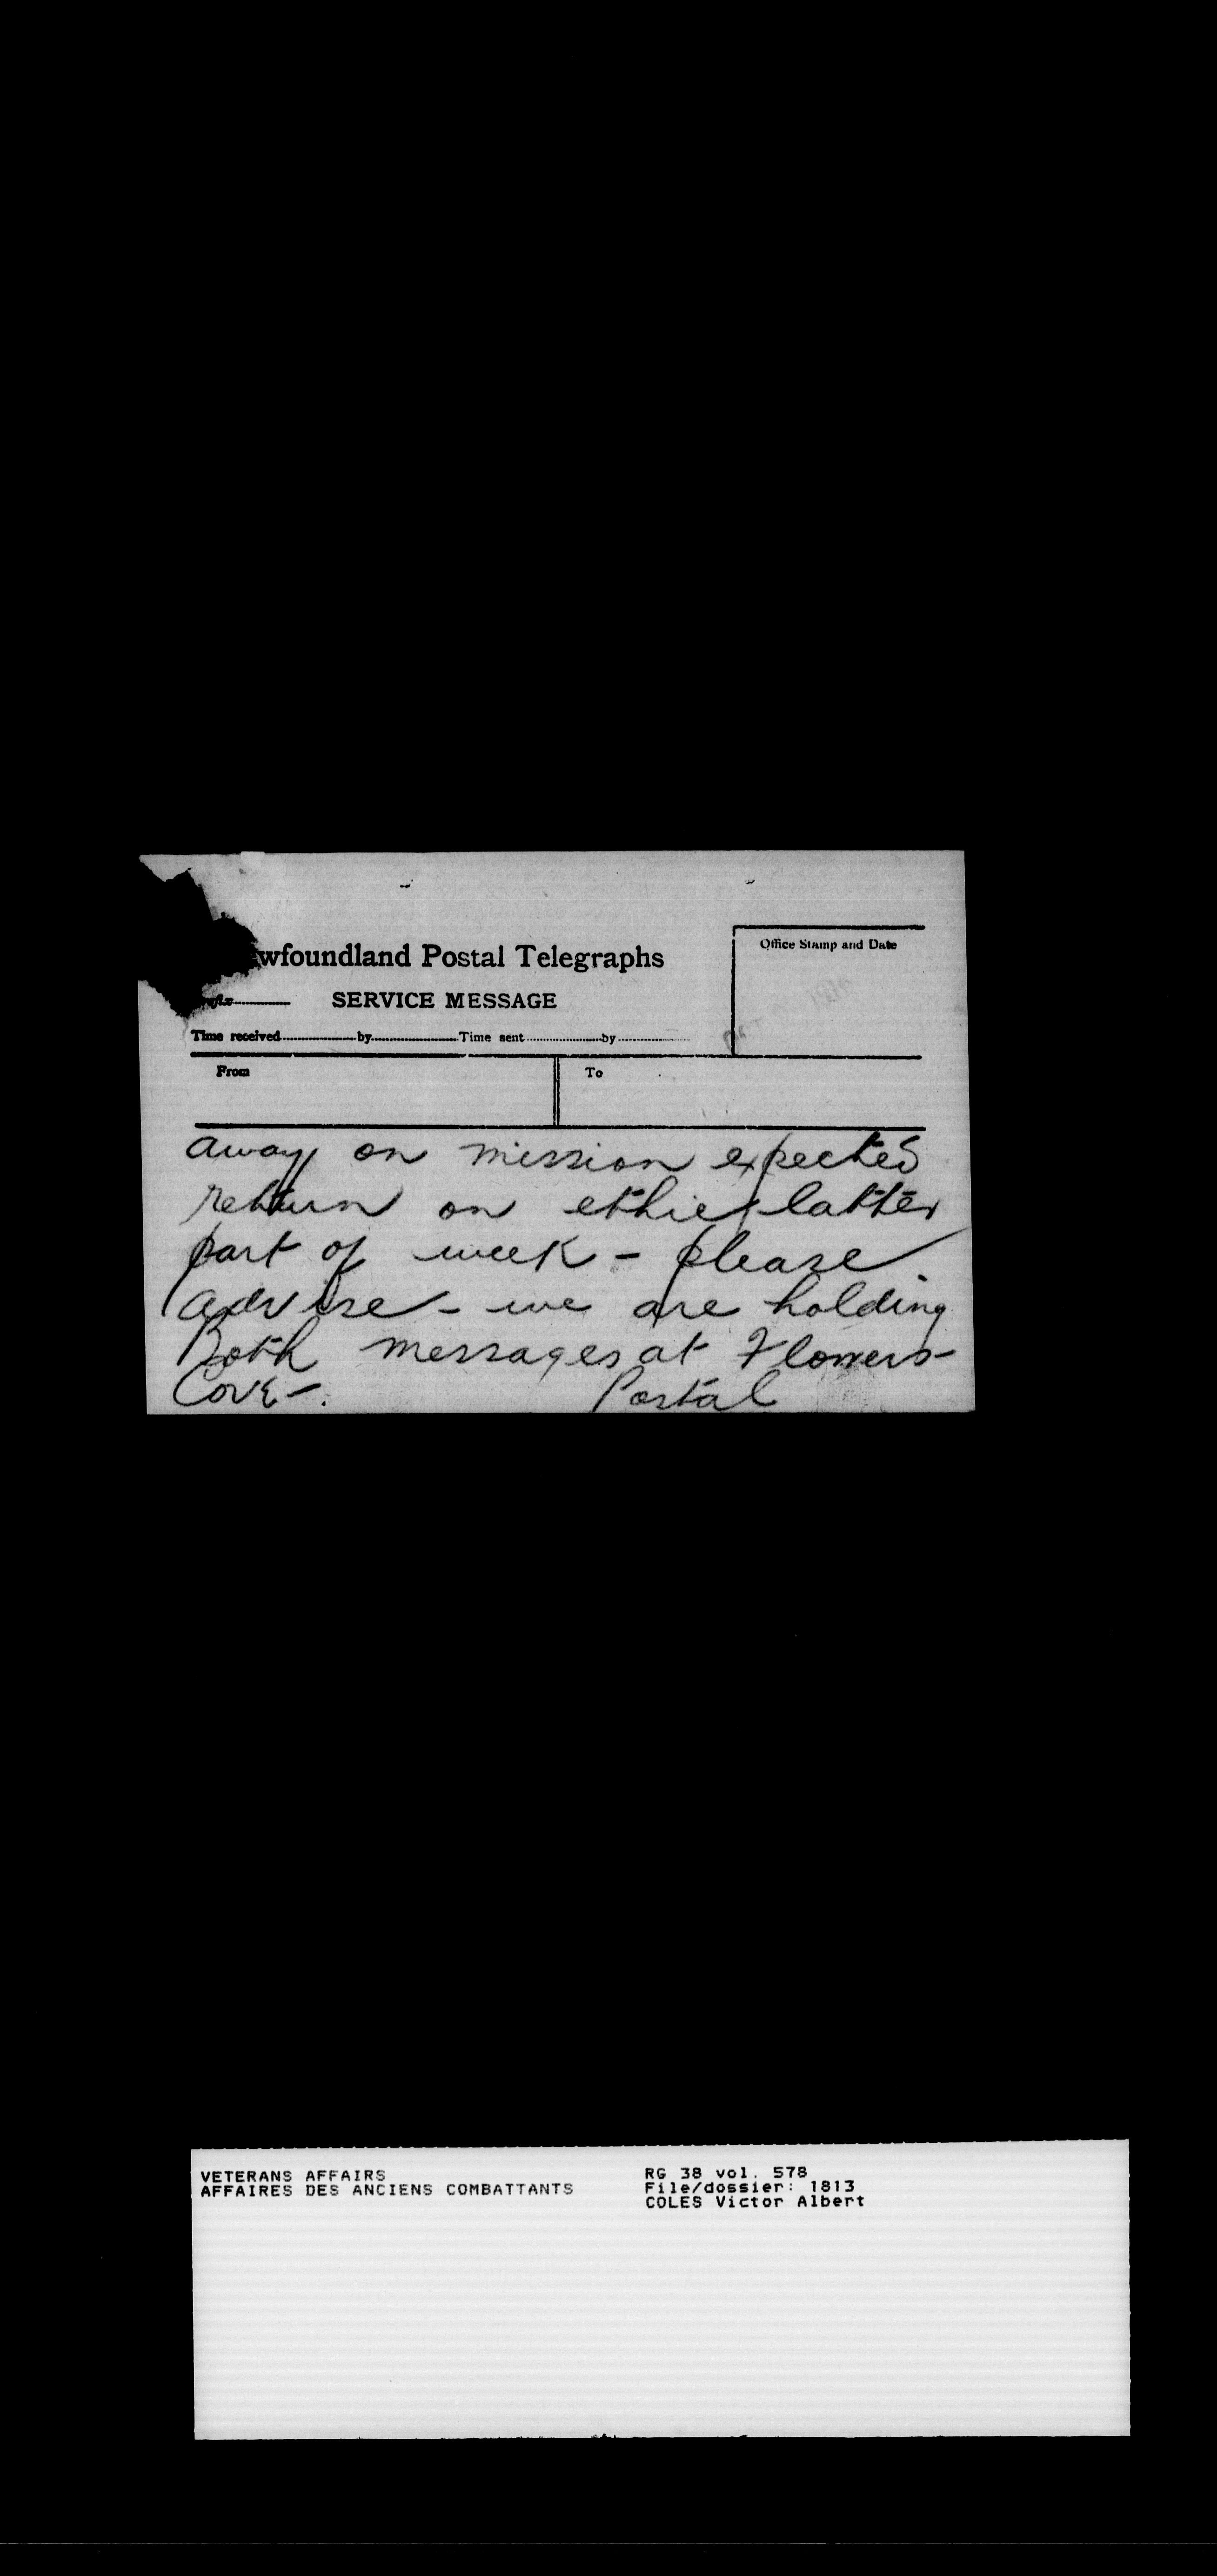 wfoundland Postal Telegraphs
Office Stamp and Date
SERVICE MESSAGE
Time received by Time sent by
From To
away on mission expected
return on ethie latter
part of week - please
advise - we are holding
Both messages at Flowers-
Cove -.
Postal
VETERANS AFFAIRS
AFFAIRES DES ANCIENS COMBATTANTS
RG 38 vol. 578
File/dossier: 1813
COLES Victor Albert